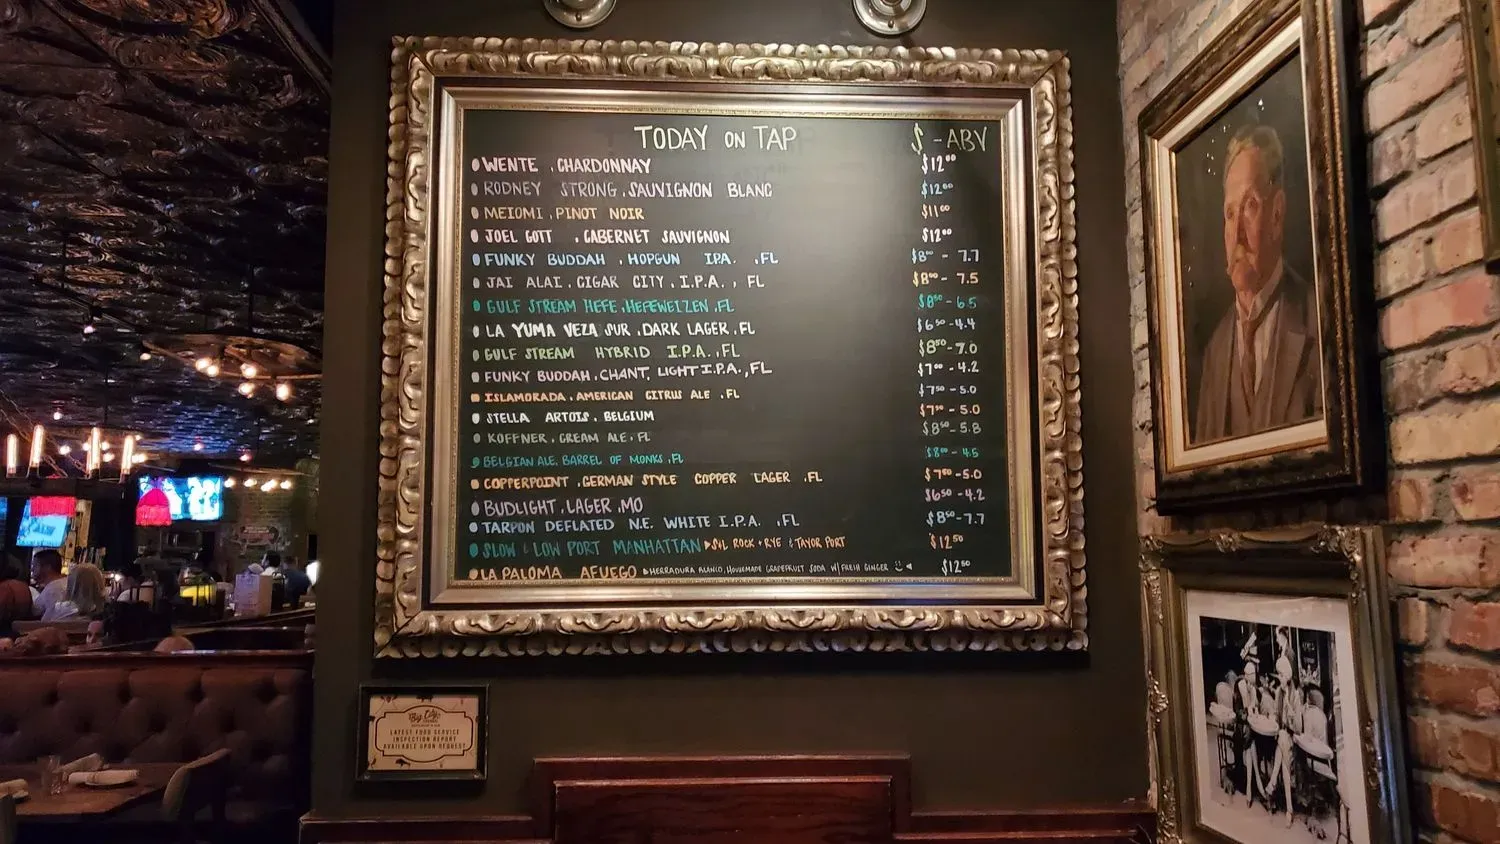 TODAY ON TAP $ - ABV
WENTE . CHARDONNAY $12⁰⁰
RODNEY STRONG . SAUVIGNON BLANC $12⁰⁰
MEIOMI . PINOT NOIR $11⁰⁰
JOEL GOTT . CABERNET SAUVIGNON $12⁰⁰
FUNKY BUDDAH . HOPGUN IPA. .FL $8⁰⁰ - 7.7
JAI ALAI . CIGAR CITY . I.P.A. , FL $8⁰⁰ - 7.5
GULF STREAM HEFE . HEFEWEIZEN .FL $8⁵⁰ - 6.5
LA YUMA VEZA SUR . DARK LAGER . FL $6⁵⁰ - 4.4
GULF STREAM HYBRID I.P.A. , FL $8⁵⁰ - 7.0
FUNKY BUDDAH . CHANT. LIGHT I.P.A. , FL $7⁰⁰ - 4.2
ISLAMORADA . AMERICAN CITRUS ALE . FL $7⁵⁰ - 5.0
STELLA ARTOIS . BELGIUM $7⁵⁰ - 5.0
KOFFNER . CREAM ALE . FL $8⁵⁰ - 5.8
BELGIAN ALE. BARREL OF MONKS .FL $8⁰⁰ - 4.5
COPPERPOINT . GERMAN STYLE COPPER LAGER .FL $7⁵⁰ - 5.0
BUDLIGHT . LAGER .MO $6⁵⁰ - 4.2
TARPON DEFLATED N.E. WHITE I.P.A. .FL $8⁵⁰ - 7.7
SLOW & LOW PORT MANHATTAN ROCK RYE & TAYOR PORT $12⁵⁰
LA PALOMA AFUEGO HERRADURA BLANCO, HOUSEMADE GRAPEFRUIT SODA W/ FRESH GINGER $12⁵⁰
Big City
LATEST FOOD SERVICE
INSPECTION REPORT
AVAILABLE UPON REQUEST